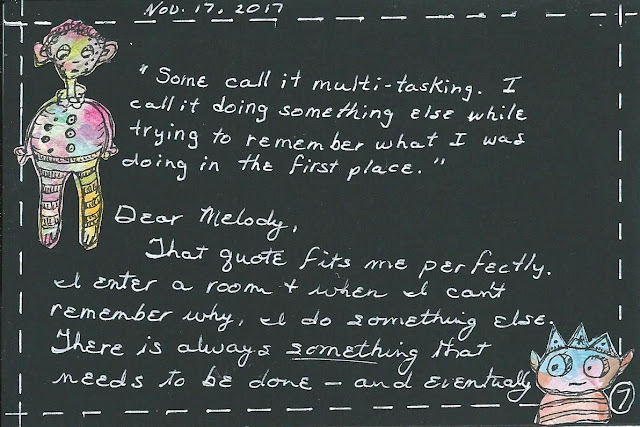 Nov. 17, 2017
"Some call it multi-tasking. I
call it doing something else while
trying to remember what I was
doing in the first place."
Dear Melody,
That quote fits me perfectly.
I enter a room + when I can't
remember why, I do something else.
There is always something that
needs to be done - and eventually
7